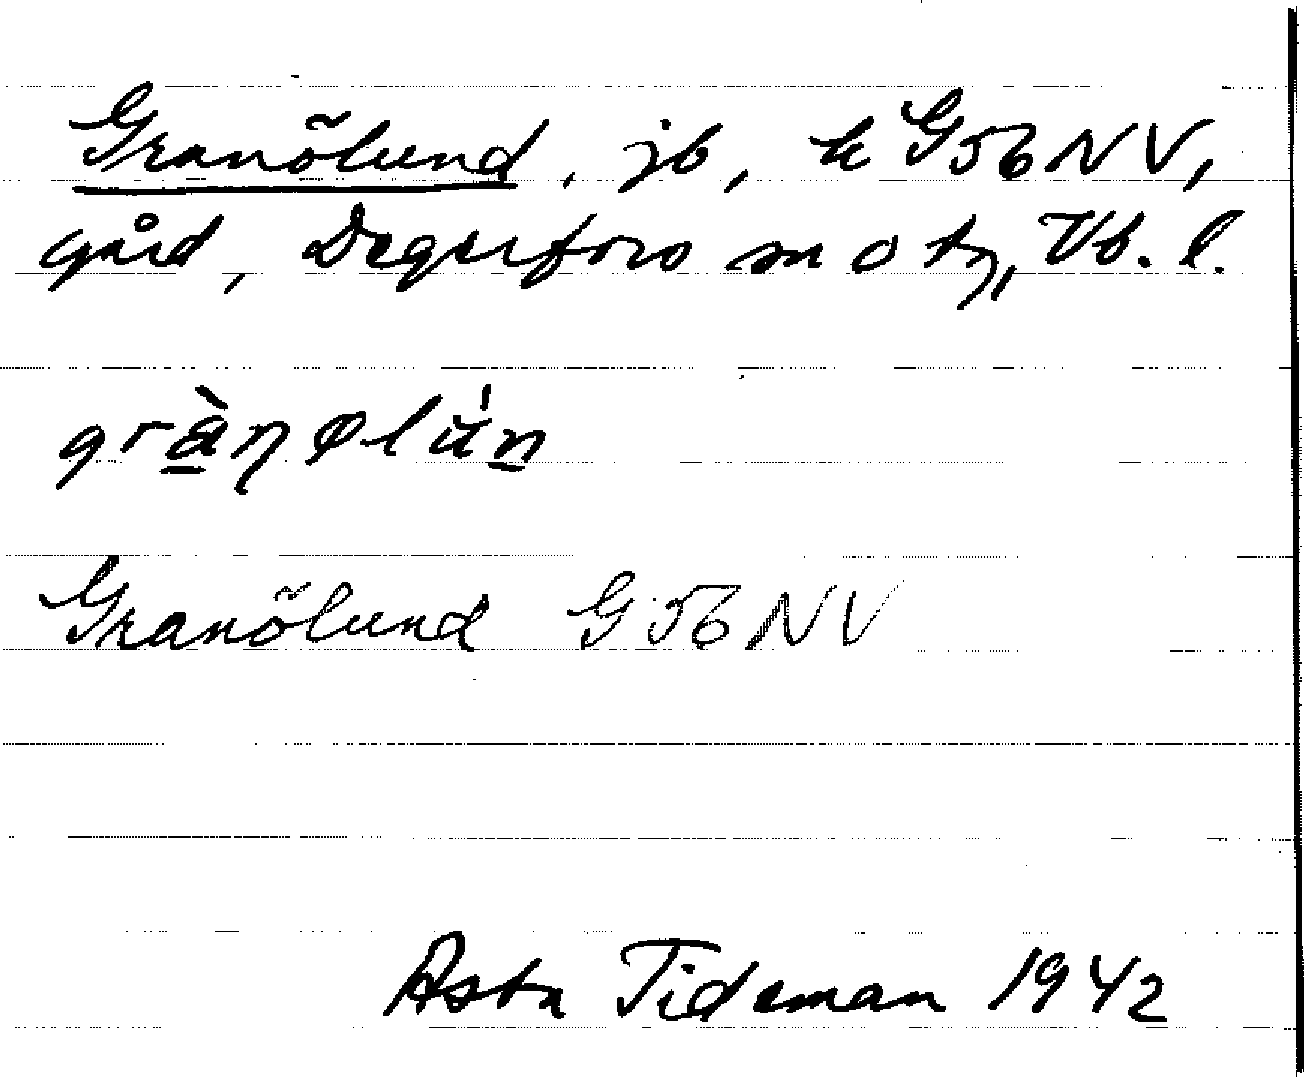 Granölund, jb, k G56NV,
gård, Degerfors sn o tg, Vb. l.
grànølún
Granölund G56NV
Asta Tideman 1942